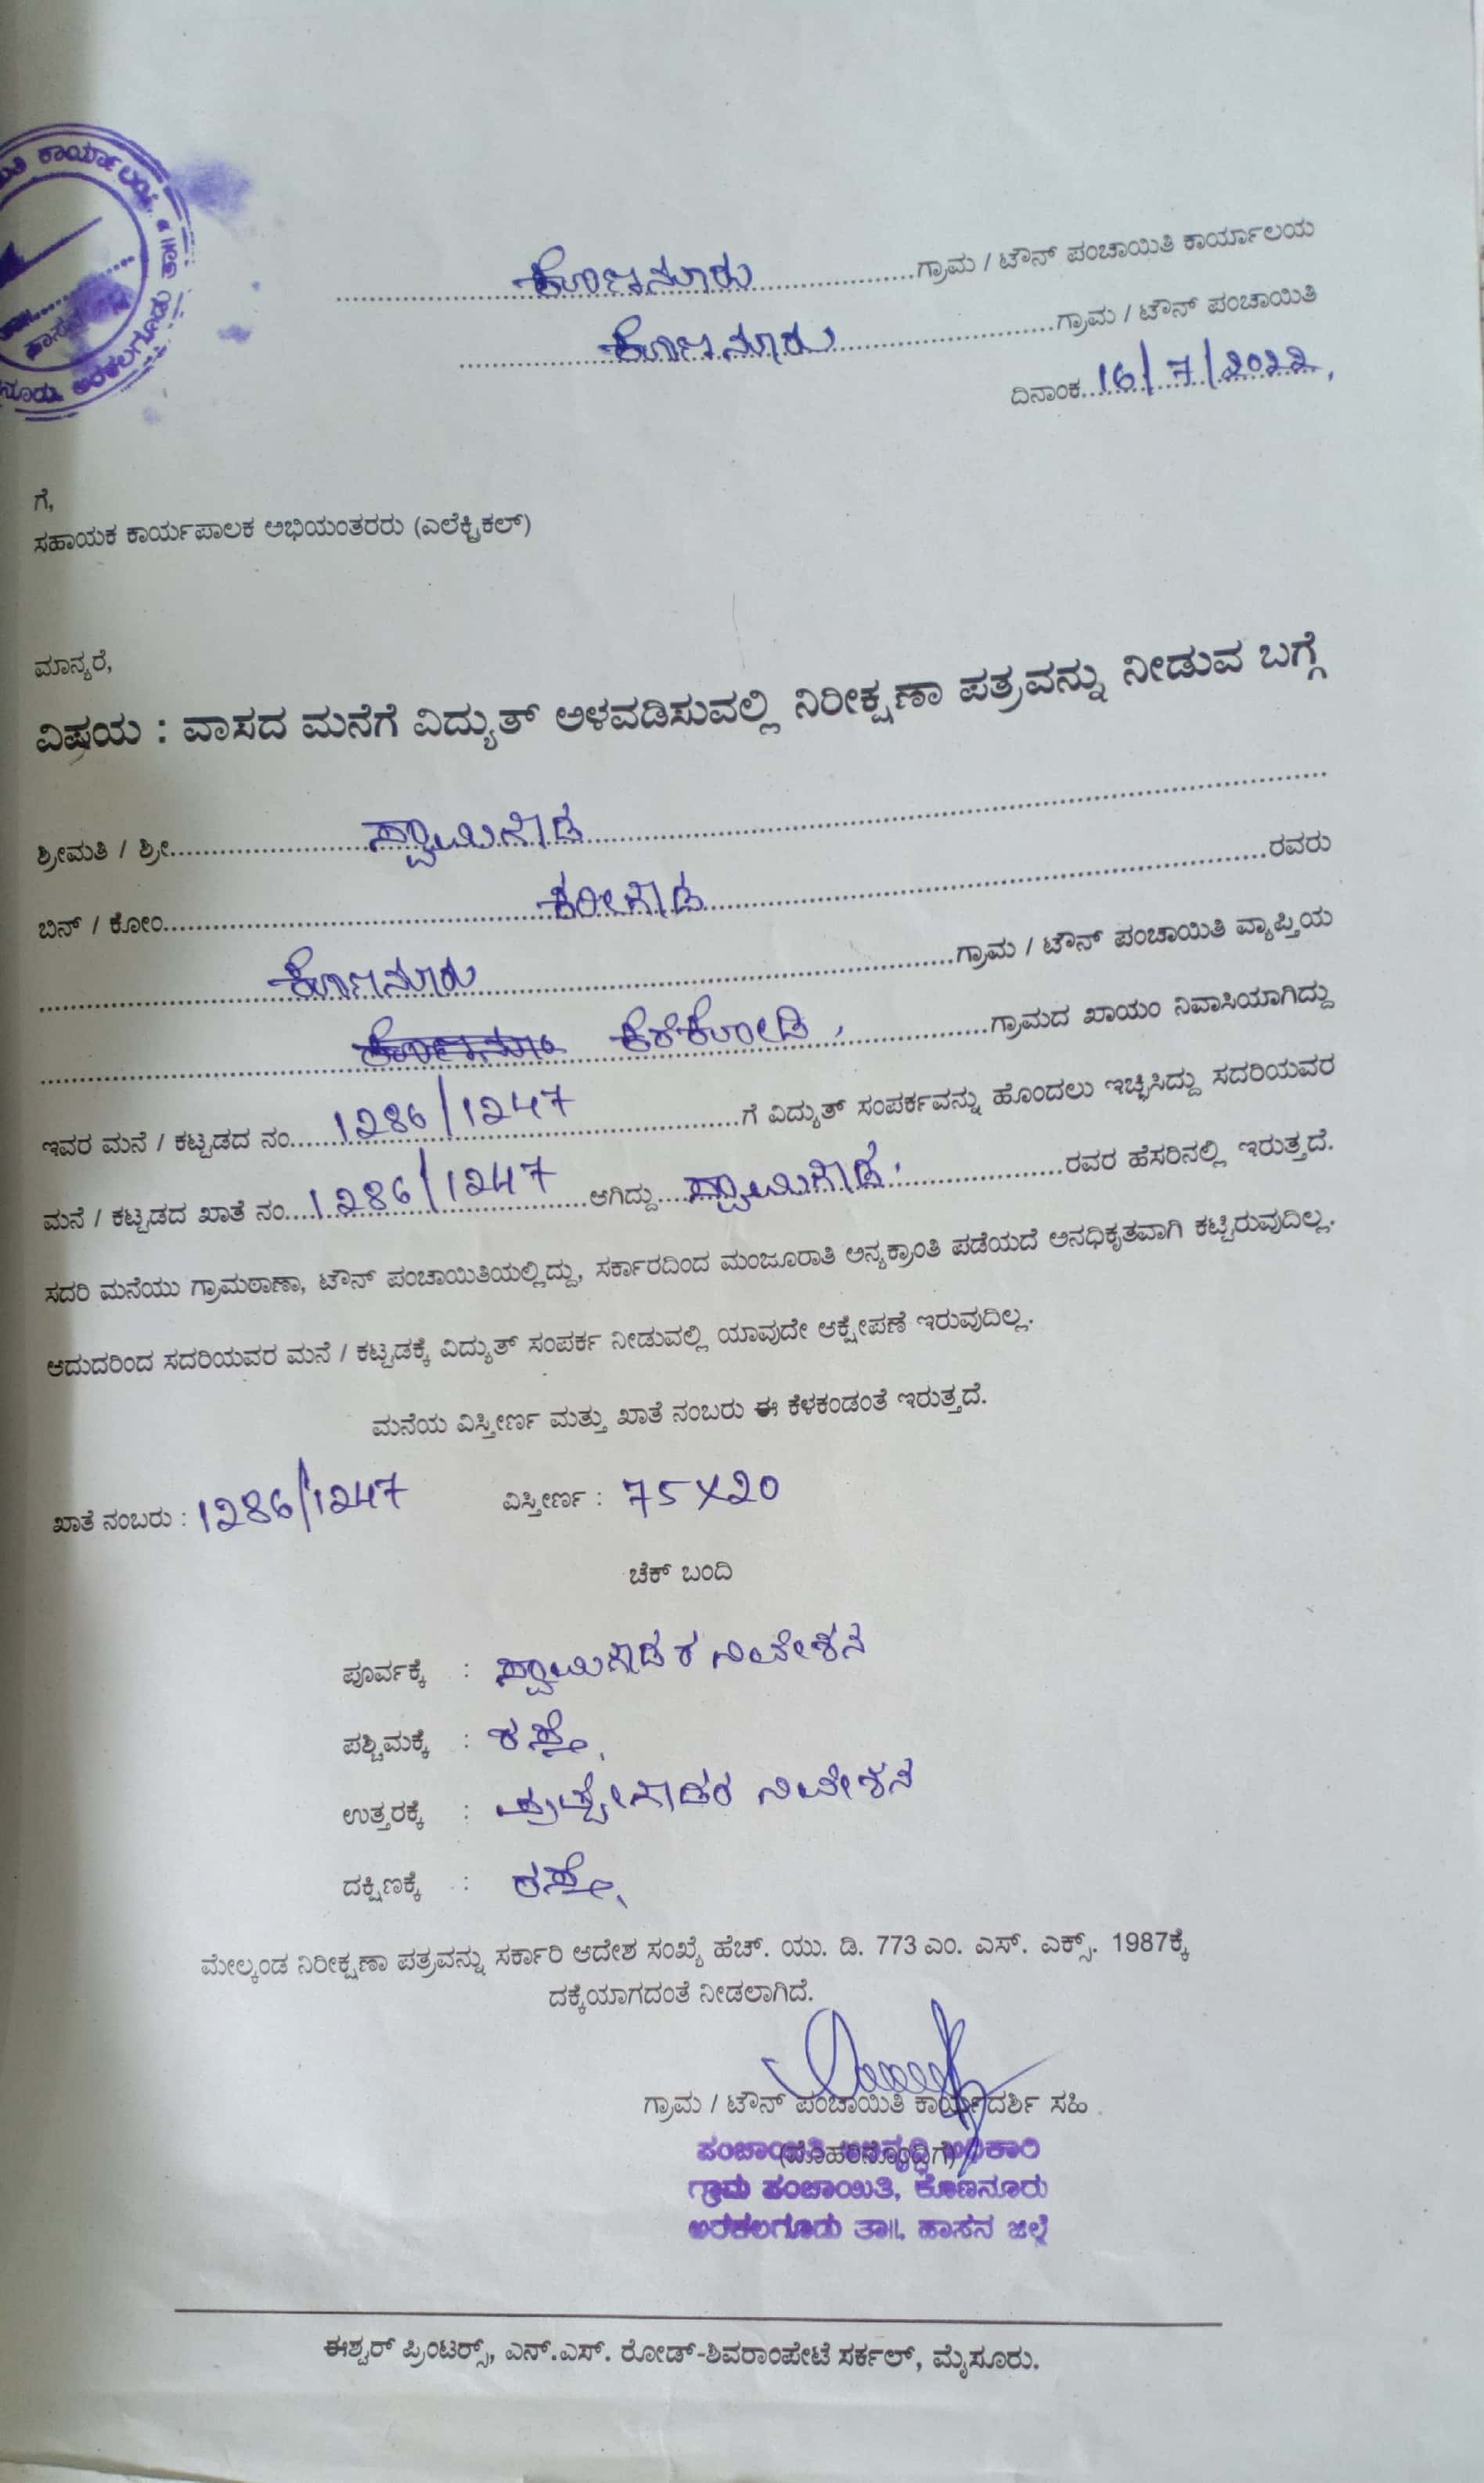 ಕಾರ್ಯಾಲಯ
ಹಾಸನ
ಅರಕಲಗೂಡು ತಾ॥
ಕೊಣನೂರು ಗ್ರಾಮ / ಟೌನ್ ಪಂಚಾಯಿತಿ ಕಾರ್ಯಾಲಯ
ಕೊಣನೂರು ಗ್ರಾಮ / ಟೌನ್ ಪಂಚಾಯಿತಿ
ದಿನಾಂಕ 16/7/2022
ಗೆ,
ಸಹಾಯಕ ಕಾರ್ಯಪಾಲಕ ಅಭಿಯಂತರರು (ಎಲೆಕ್ಟ್ರಿಕಲ್)
ಮಾನ್ಯರೆ,
ವಿಷಯ : ವಾಸದ ಮನೆಗೆ ವಿದ್ಯುತ್ ಅಳವಡಿಸುವಲ್ಲಿ ನಿರೀಕ್ಷಣಾ ಪತ್ರವನ್ನು ನೀಡುವ ಬಗ್ಗೆ
ಶ್ರೀಮತಿ / ಶ್ರೀ ಸ್ವಾಮಿಗೌಡ
ಬಿನ್ / ಕೋಂ ಕರೀಗೌಡ ರವರು
ಕೊಣನೂರು ಗ್ರಾಮ / ಟೌನ್ ಪಂಚಾಯಿತಿ ವ್ಯಾಪ್ತಿಯ
ಕೆರೆಕೋಡಿ, ಗ್ರಾಮದ ಖಾಯಂ ನಿವಾಸಿಯಾಗಿದ್ದು
ಇವರ ಮನೆ / ಕಟ್ಟಡದ ನಂ. 1286/1247 ಗೆ ವಿದ್ಯುತ್ ಸಂಪರ್ಕವನ್ನು ಹೊಂದಲು ಇಚ್ಛಿಸಿದ್ದು ಸದರಿಯವರ
ಮನೆ / ಕಟ್ಟಡದ ಖಾತೆ ನಂ. 1286/1247 ಆಗಿದ್ದು ಸ್ವಾಮಿಗೌಡ, ರವರ ಹೆಸರಿನಲ್ಲಿ ಇರುತ್ತದೆ.
ಸದರಿ ಮನೆಯು ಗ್ರಾಮಠಾಣಾ, ಟೌನ್ ಪಂಚಾಯಿತಿಯಲ್ಲಿದ್ದು, ಸರ್ಕಾರದಿಂದ ಮಂಜೂರಾತಿ ಅನ್ಯಕ್ರಾಂತಿ ಪಡೆಯದೆ ಅನಧಿಕೃತವಾಗಿ ಕಟ್ಟಿರುವುದಿಲ್ಲ.
ಆದುದರಿಂದ ಸದರಿಯವರ ಮನೆ / ಕಟ್ಟಡಕ್ಕೆ ವಿದ್ಯುತ್ ಸಂಪರ್ಕ ನೀಡುವಲ್ಲಿ ಯಾವುದೇ ಆಕ್ಷೇಪಣೆ ಇರುವುದಿಲ್ಲ.
ಮನೆಯ ವಿಸ್ತೀರ್ಣ ಮತ್ತು ಖಾತೆ ನಂಬರು ಈ ಕೆಳಕಂಡಂತೆ ಇರುತ್ತದೆ.
ಖಾತೆ ನಂಬರು : 1286/1247 ವಿಸ್ತೀರ್ಣ : 75X20
ಚೆಕ್ ಬಂದಿ
ಪೂರ್ವಕ್ಕೆ : ಸ್ವಾಮಿಗೌಡರ ನಿವೇಶನ
ಪಶ್ಚಿಮಕ್ಕೆ : ರಸ್ತೆ,
ಉತ್ತರಕ್ಕೆ : ನಿವೇಶನ
ದಕ್ಷಿಣಕ್ಕೆ : ರಸ್ತೆ,
ಮೇಲ್ಕಂಡ ನಿರೀಕ್ಷಣಾ ಪತ್ರವನ್ನು ಸರ್ಕಾರಿ ಆದೇಶ ಸಂಖ್ಯೆ ಹೆಚ್. ಯು. ಡಿ. 773 ಎಂ. ಎಸ್. ಎಕ್ಸ್. 1987ಕ್ಕೆ
ದಕ್ಕೆಯಾಗದಂತೆ ನೀಡಲಾಗಿದೆ.
ಗ್ರಾಮ / ಟೌನ್ ಪಂಚಾಯಿತಿ ಕಾರ್ಯದರ್ಶಿ ಸಹಿ
(ಮೊಹರಿನೊಂದಿಗೆ)
ಪಂಚಾಯಿತಿ ಅಭಿವೃದ್ಧಿ ಅಧಿಕಾರಿ
ಗ್ರಾಮ ಪಂಚಾಯಿತಿ, ಕೊಣನೂರು
ಅರಕಲಗೂಡು ತಾ॥. ಹಾಸನ ಜಿಲ್ಲೆ
ಈಶ್ವರ್ ಪ್ರಿಂಟರ್ಸ್, ಎನ್.ಎಸ್. ರೋಡ್-ಶಿವರಾಂಪೇಟೆ ಸರ್ಕಲ್, ಮೈಸೂರು.